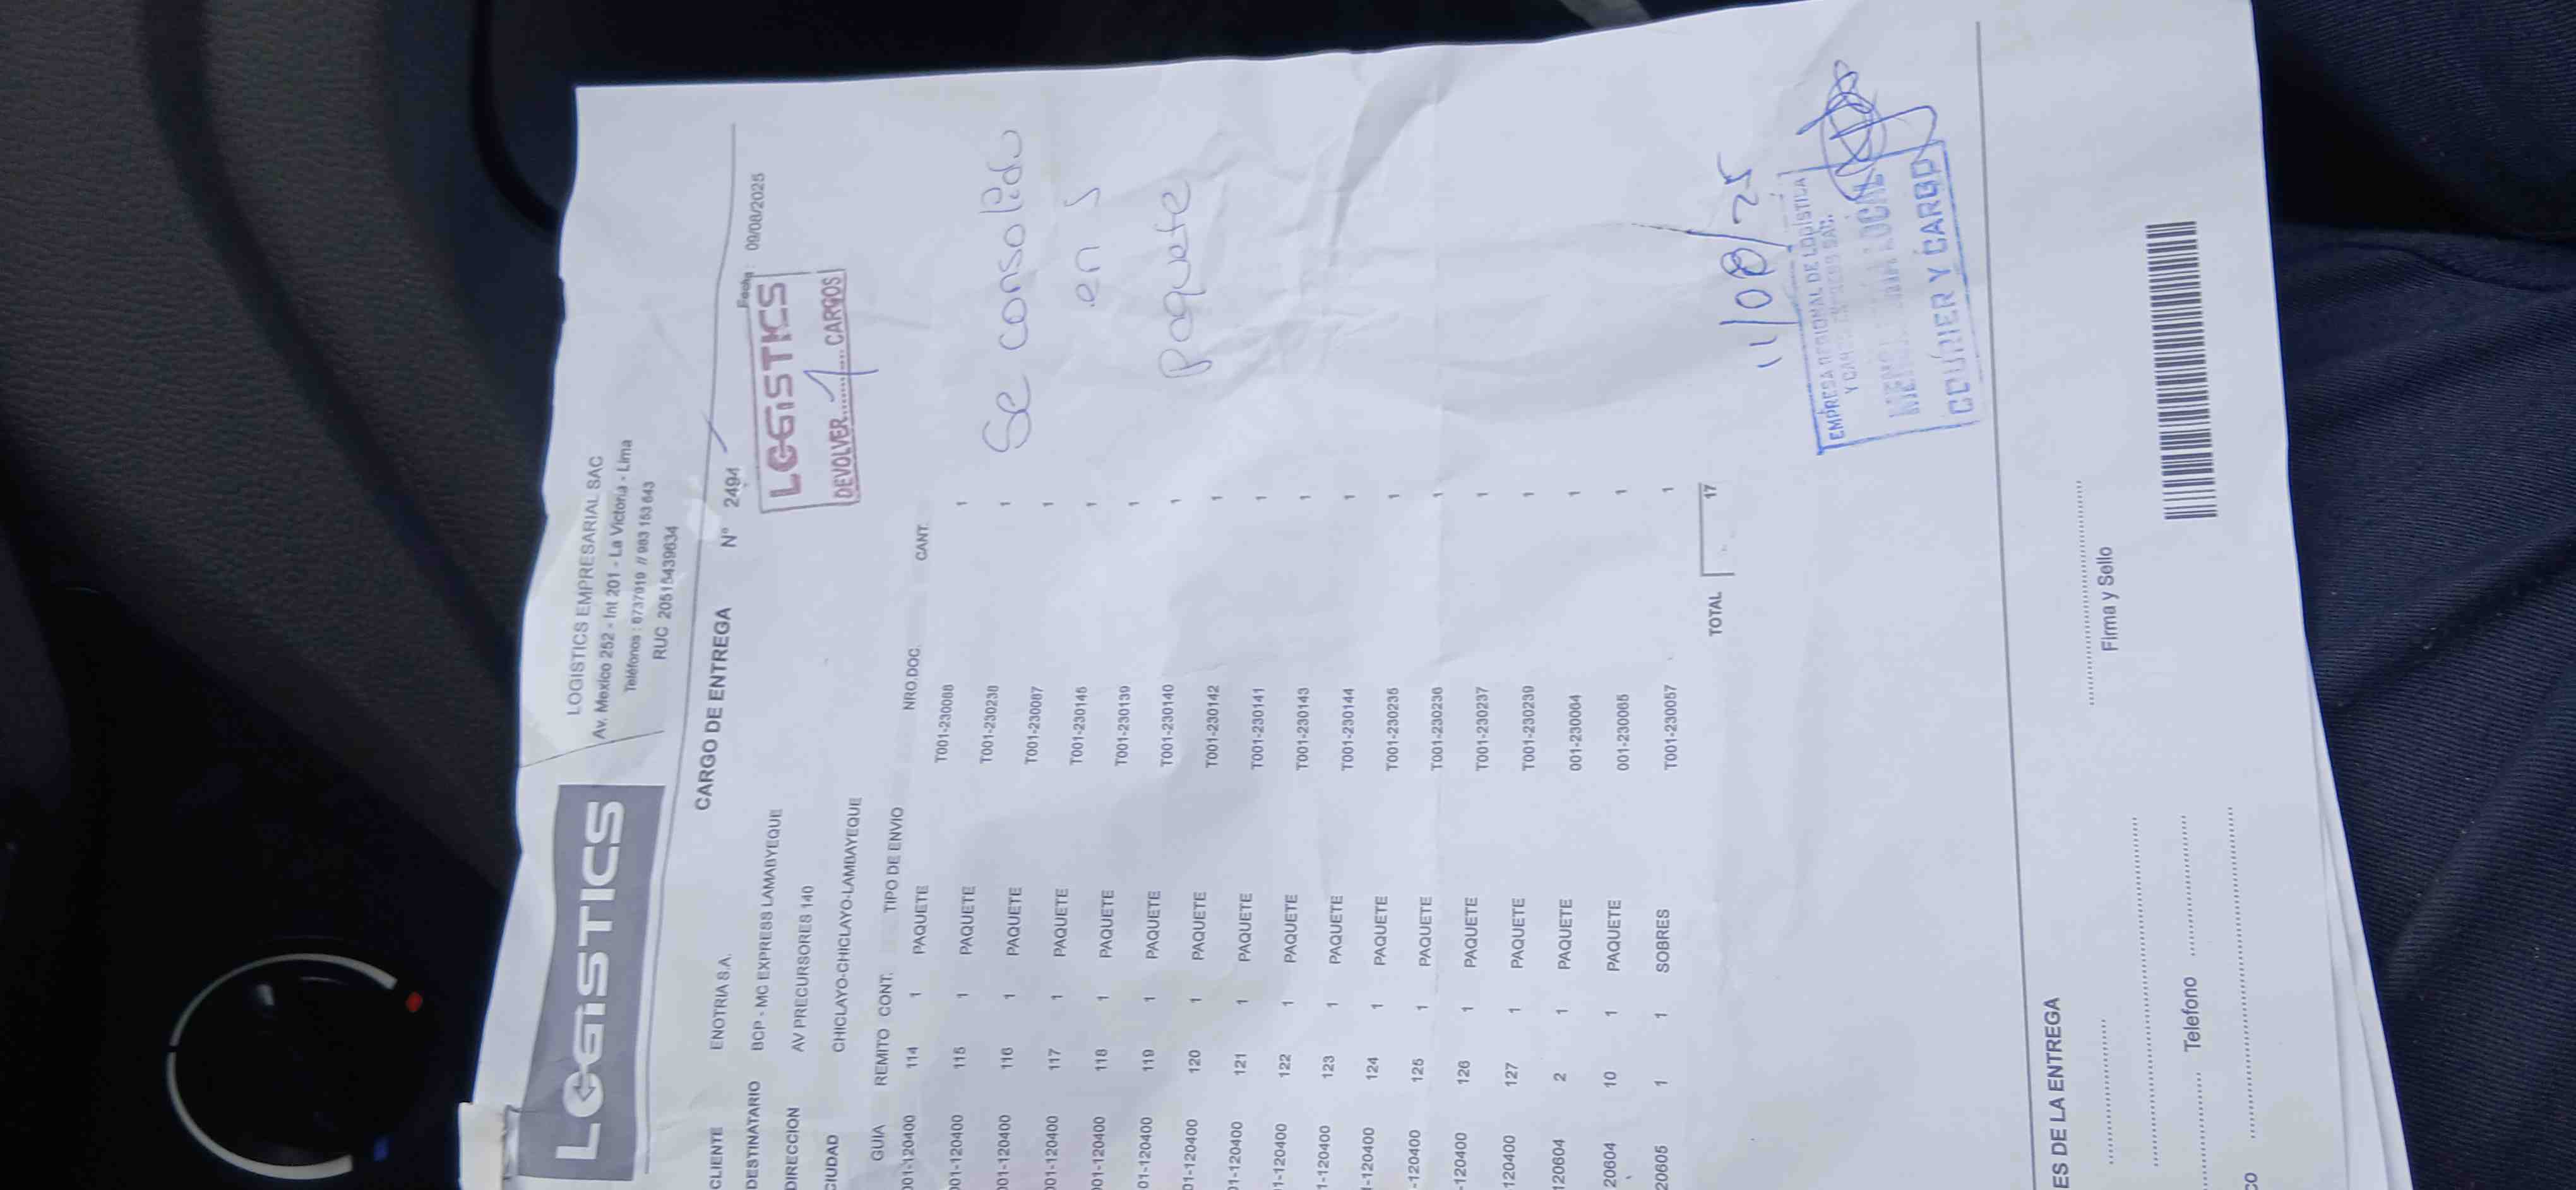 LOGISTICS
LOGISTICS EMPRESARIAL SAC
Av. Mexico 252 - Int 201 - La Victoria - Lima
Teléfonos : 6737919 // 983 163 643
RUC 20515439634
CARGO DE ENTREGA N° 2494
CLIENTE ENOTRIA S.A. Fecha : 09/08/2025
DESTINATARIO BCP - MC EXPRESS LAMABYEQUE
DIRECCION AV PRECURSORES 140
CIUDAD CHICLAYO-CHICLAYO-LAMBAYEQUE
LOGISTICS
DEVOLVER 1 CARGOS
GUIA REMITO CONT. TIPO DE ENVIO NRO.DOC. CANT.
001-120400 114 1 PAQUETE T001-230088 1
001-120400 115 1 PAQUETE T001-230238 1
001-120400 116 1 PAQUETE T001-230087 1
001-120400 117 1 PAQUETE T001-230145 1
001-120400 118 1 PAQUETE T001-230139 1
01-120400 119 1 PAQUETE T001-230140 1
01-120400 120 1 PAQUETE T001-230142 1
01-120400 121 1 PAQUETE T001-230141 1
01-120400 122 1 PAQUETE T001-230143 1
1-120400 123 1 PAQUETE T001-230144 1
1-120400 124 1 PAQUETE T001-230235 1
-120400 125 1 PAQUETE T001-230236 1
-120400 126 1 PAQUETE T001-230237 1
120400 127 1 PAQUETE T001-230239 1
120604 2 1 PAQUETE 001-230064 1
20604 10 1 PAQUETE 001-230065 1
20605 1 1 SOBRES T001-230057 1
Se consolido
en 5
paquete
TOTAL 17
11/08/25
EMPRESA REGIONAL DE LOGÍSTICA
COURIER Y CARGO
ES DE LA ENTREGA
Firma y Sello
Telefono
co